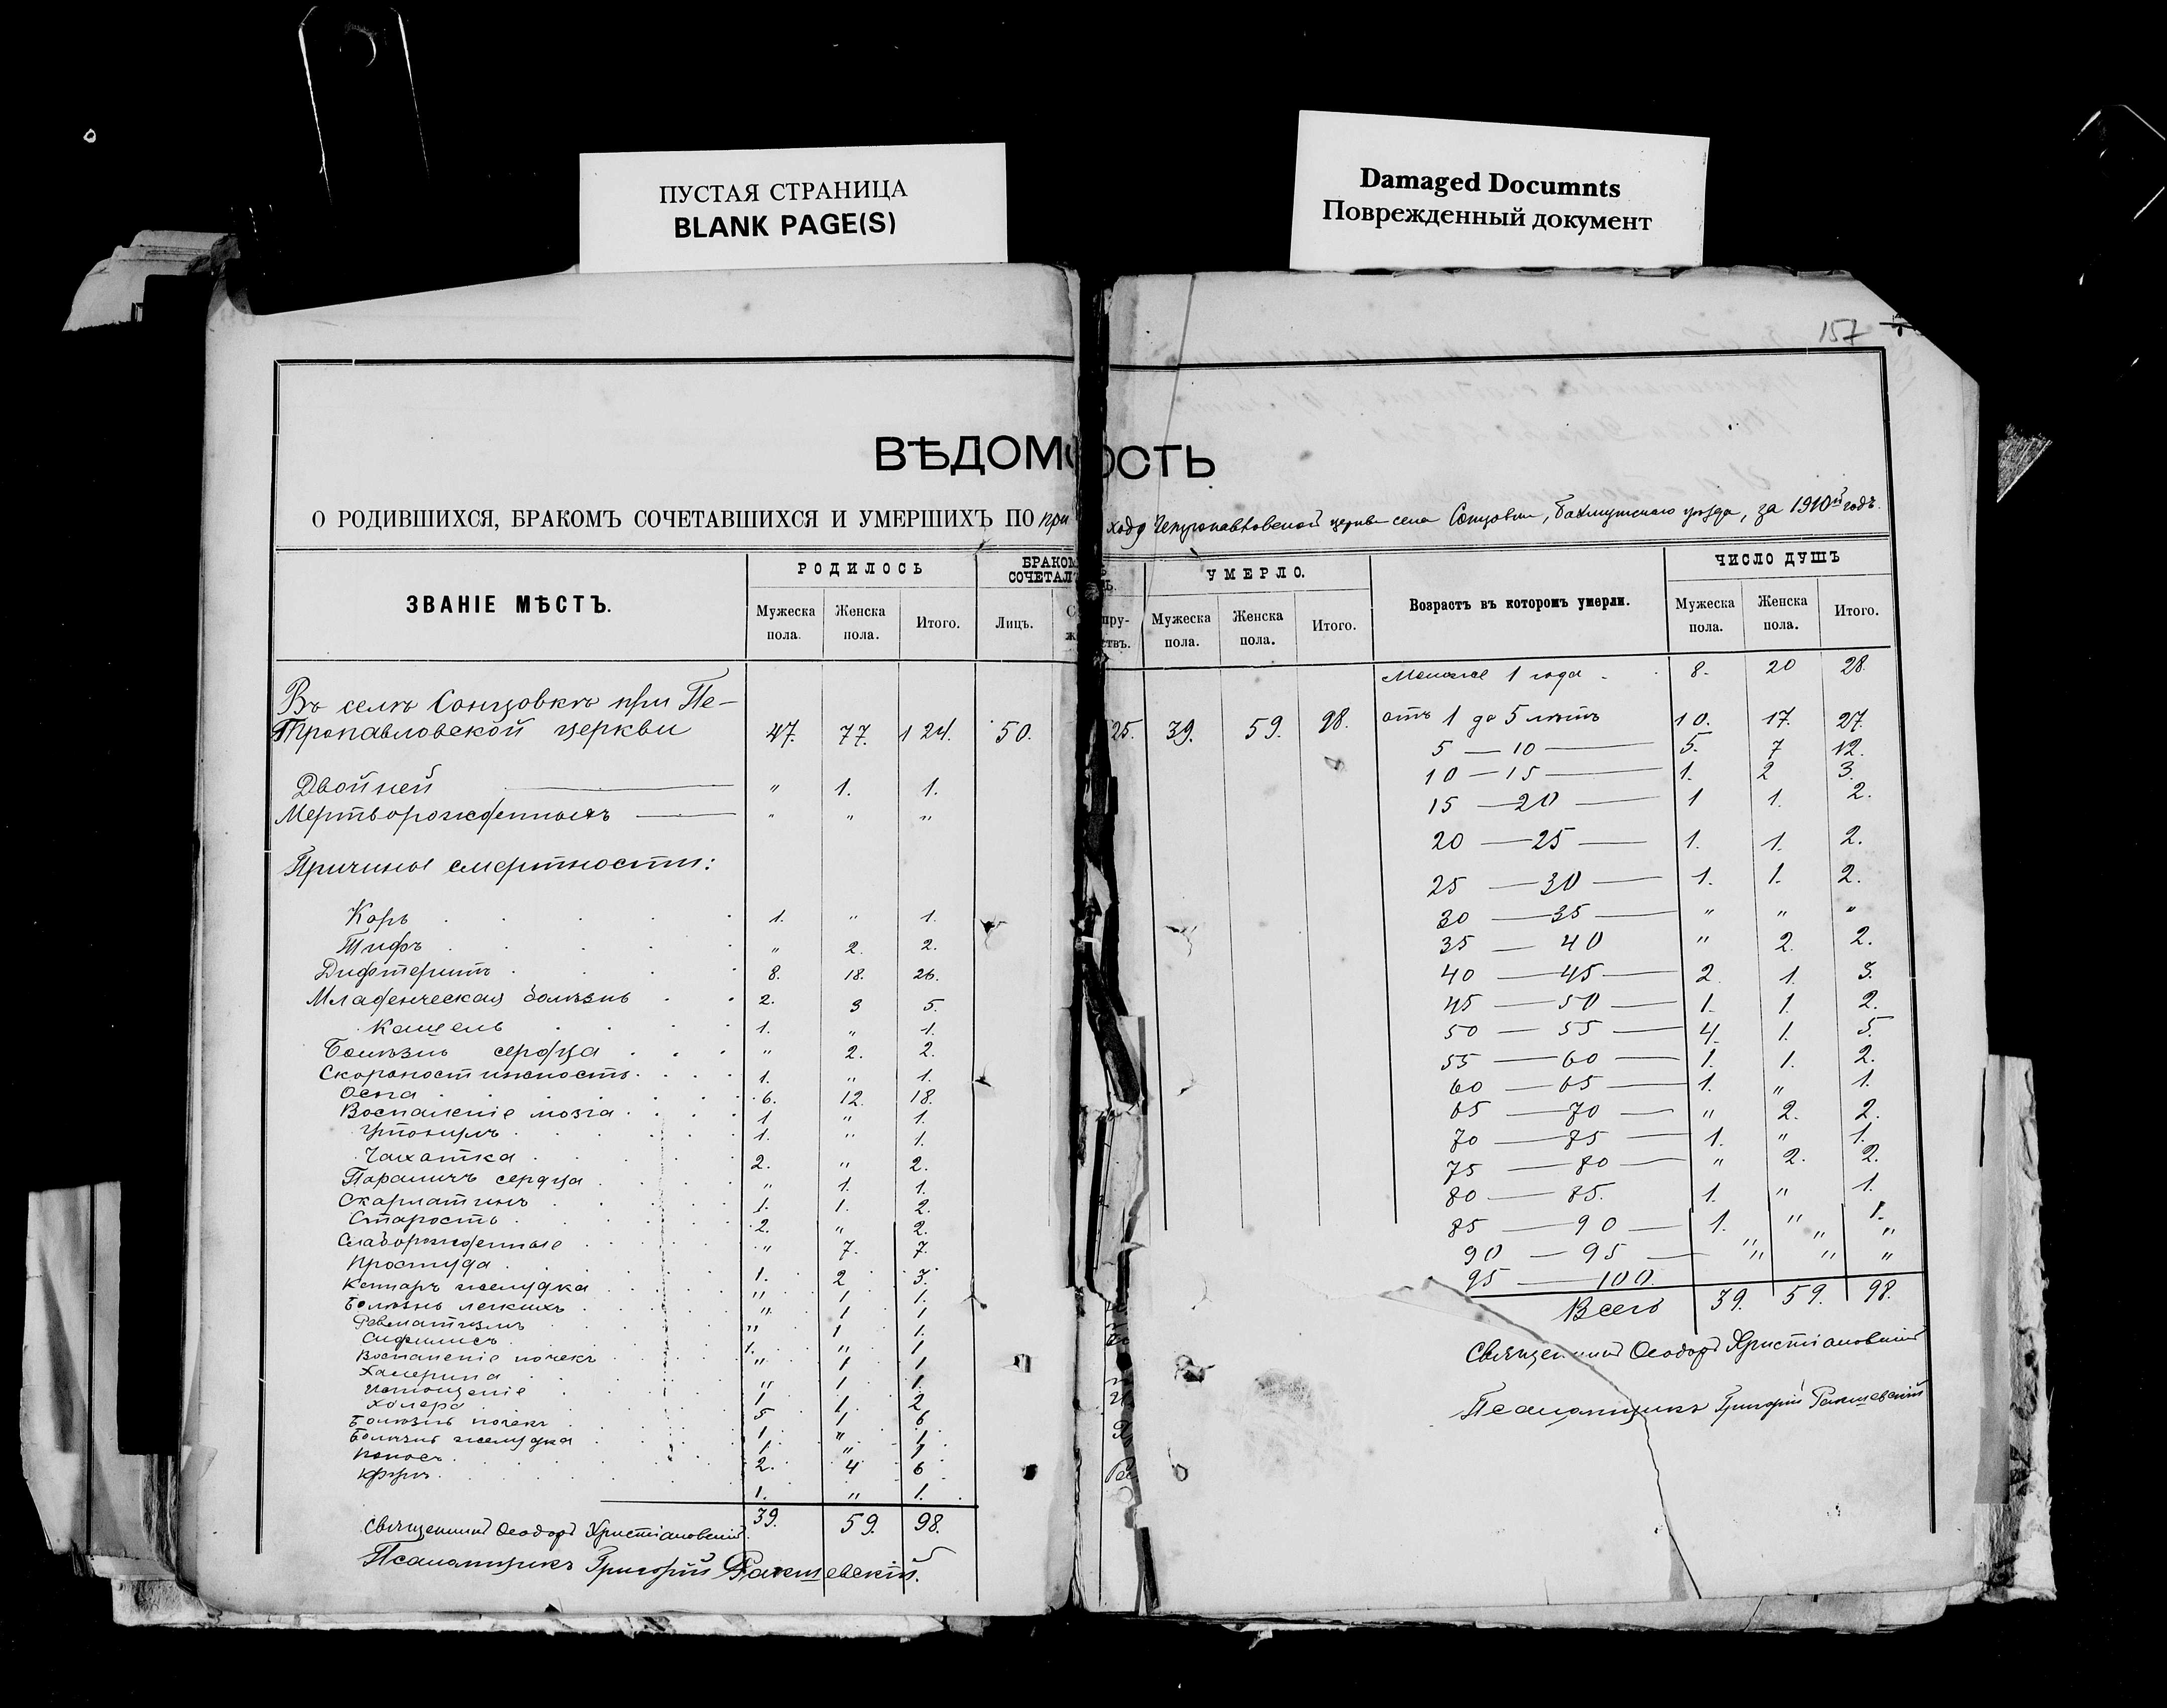 ПУСТАЯ СТРАНИЦА
BLANK PAGE(S)
Damaged Documnts
Поврежденный документ
157
ВѢДОМОСТЬ
О РОДИВШИХСЯ, БРАКОМЪ СОЧЕТАВШИХСЯ И УМЕРШИХЪ ПО приходу Петропавловской церкви села Сонцовки, Бахмутскаго уѣзда, за 1910й годъ.
ЗВАНІЕ МѢСТЪ. РОДИЛОСЬ БРАКОМЪ СОЧЕТАЛОСЬ. УМЕРЛО. Возрастъ въ которомъ умерли. ЧИСЛО ДУШЪ
Мужеска пола. Женска пола. Итого. Лицъ. Супружествъ. Мужеска пола. Женска пола. Итого. Мужеска пола. Женска пола. Итого.
Въ селѣ Сонцовкѣ при Пе-
тропавловской церкви 47. 77. 124. 50. 25. 39. 59. 98.
Двойней 〃 1. 1.
Мертворожденныхъ 〃 〃 〃
Причины смертности:
Корь 1. 〃 1.
Тифъ 〃 2. 2.
Дифтеритъ 8. 18. 26.
Младенческая болѣзнь 2. 3 5.
Кашель 1. 〃 1.
Болѣзнь сердца 〃 2. 2.
Скоропостижность 1. 〃 1.
Оспа 6. 12. 18.
Воспаленіе мозга 1 〃 1.
Утонулъ 1. 〃 1.
Чахотка 2. 〃 2.
Параличъ сердца 〃 1. 1.
Скарлатинъ 1. 1. 2.
Старость 2. 〃 2.
Слаборожденные 〃 7. 7.
Простуда 1. 2 3.
Катаръ желудка 〃 1 1.
Болѣзнь легкихъ 〃 1 1
Ревматизмъ 〃 1 1.
Сифилисъ 1. 〃 1
Воспаленіе почекъ 〃 1 1
Холерина 〃 1 1.
Истощеніе 1 1. 2
Холера 5 1 6
Болѣзнь почекъ 1 〃 1
Болѣзнь желудка 1. 〃 1
Поносъ 2. 4 6
Крупъ 1. 〃 1.
39. 59. 98.
Священникъ Ѳеодоръ Христіановскій
Псаломщикъ Григорій
Меньше 1 года 8. 20 28
отъ 1 до 5 лѣтъ 10. 17. 27.
5 — 10 5. 7 12.
10 — 15 1. 2 3.
15 — 20 1 1. 2.
20 — 25 1. 1. 2.
25 — 30 1. 1. 2.
30 — 35 〃 〃 〃
35 — 40 〃 2. 2.
40 — 45 2 1. 3.
45 — 50 1. 1. 2.
50 — 55 4. 1. 5.
55 — 60 1. 1. 2.
60 — 65 1. 〃 1.
65 — 70 〃 2. 2.
70 — 75 1. 〃 1.
75 — 80 〃 2. 2.
80 — 85. 1. 〃 1.
85 — 90 1. 〃 1.
90 — 95 〃 〃 〃
95 — 100. 〃 〃 〃
Всего 39. 59. 98.
Священникъ Ѳеодоръ Христіановскій
Псаломщикъ Григорій